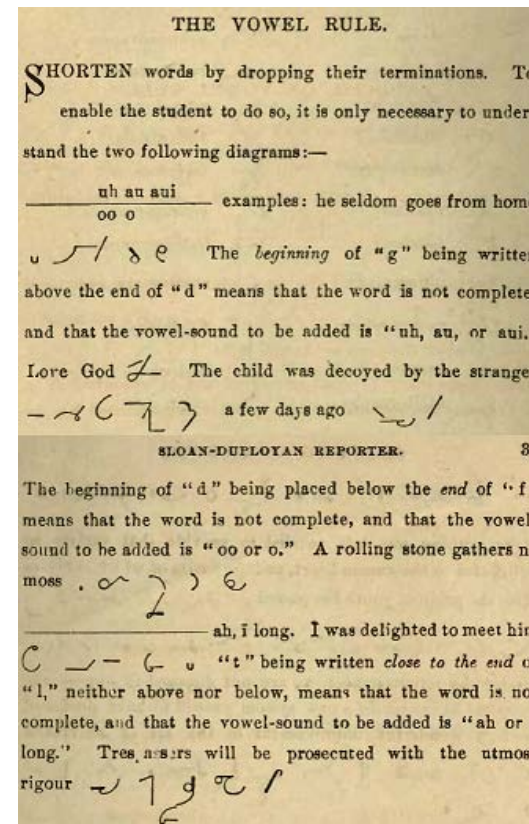 THE VOWEL RULE.
SHORTEN words by dropping their terminations. To
enable the student to do so, it is only necessary to under
stand the two following diagrams:—
uh au aui
oo o
examples: he seldom goes from hom
The beginning of "g" being writte
above the end of "d" means that the word is not complete
and that the vowel-sound to be added is "uh, au, or aui.
Love God The child was decoyed by the strange
a few days ago
SLOAN-DUPLOYAN REPORTER. 3
The beginning of "d" being placed below the end of "f
means that the word is not complete, and that the vowel
sound to be added is "oo or o." A rolling stone gathers n
moss .
ah, ī long. I was delighted to meet him
"t" being written close to the end o
"l," neither above nor below, means that the word is no
complete, and that the vowel-sound to be added is "ah or
long." will be prosecuted with the utmos
rigour